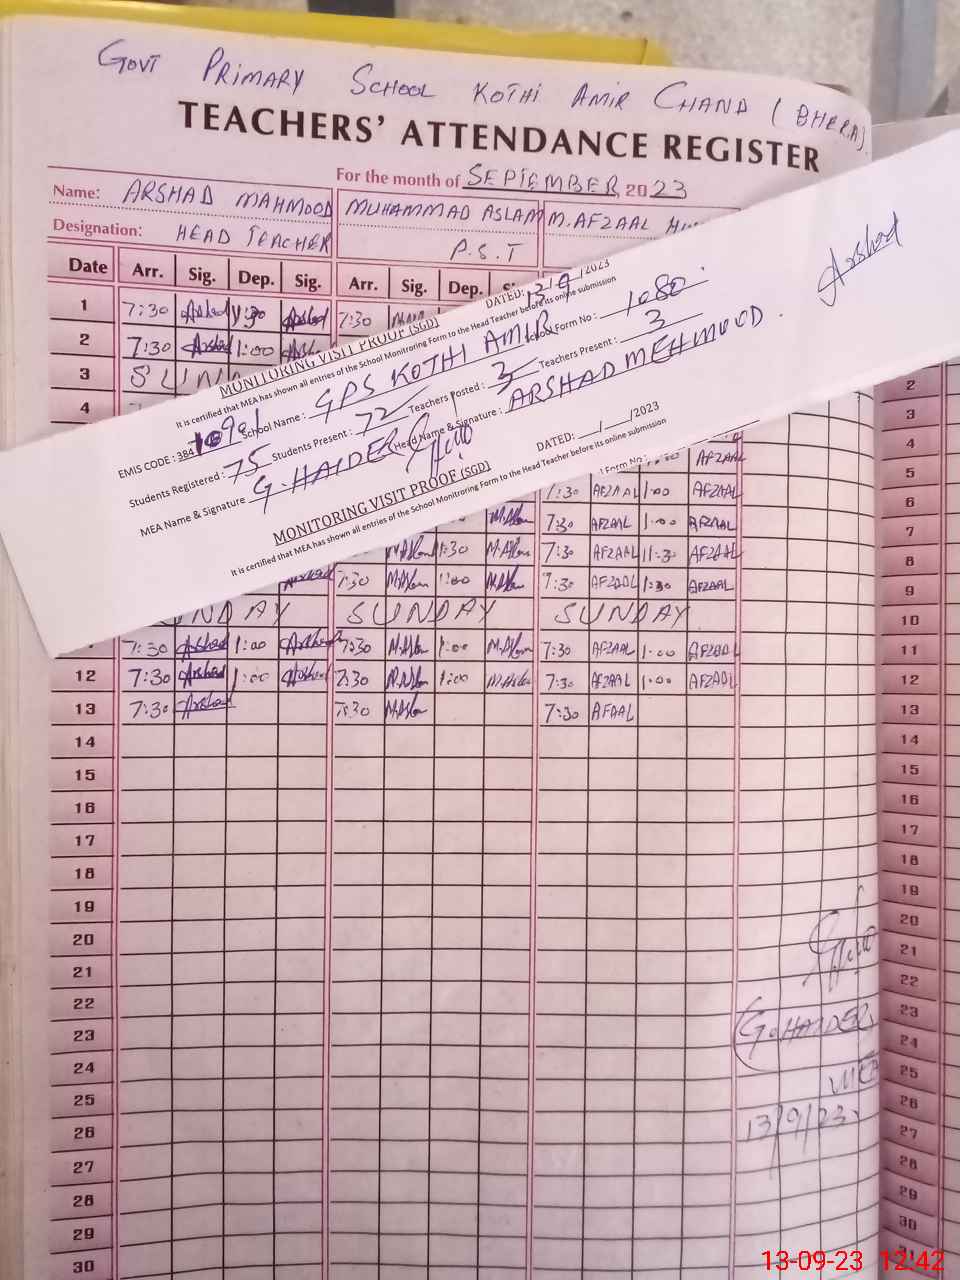 GOVT PRIMARY SCHOOL KOTHI AMIR CHAND (BHERA).
TEACHERS' ATTENDANCE REGISTER
For the month of SEPTEMBER 2023
Name: ARSHAD MAHMOOD MUHAMMAD ASLAM M. AFZAAL
Designation: HEAD TEACHER P.S.T
Date Arr. Sig. Dep. Sig. Arr. Sig. Dep.
1 7:30 Arshad Arshad 7:30
2 7:30 Arshad 1:00
3 SUN
4
DATED: 13/9/2023
MONITORING VISIT PROOF (SGD)
It is certified that MEA has shown all entries of the School Monitroring Form to the Head Teacher before its online submission
EMIS CODE : 384 School Name : GPS KOTHI AMIR School Form No : 1080
Students Registered : 75 Students Present : 72 Teachers Posted : 3 Teachers Present : 3
MEA Name & Signature G. HAIDER Head Name & Signature : ARSHAD MEHMOOD.
Arshad
DATED: __/__/2023
MONITORING VISIT PROOF (SGD)
It is certified that MEA has shown all entries of the School Monitroring Form to the Head Teacher before its online submission
Form No
AFZAAL
7:30 AFZAAL 1:00 AFZAAL
M.Aslam 7:30 AFZAAL 1:00 AFZAAL
M.Aslam 11:30 M.Aslam 7:30 AFZAAL 11:30 AFZAAL
Arshad 7:30 M.Aslam 1:00 M.Aslam 7:30 AFZAAL 1:30 AFZAAL
NDAY SUNDAY SUNDAY
7:30 Arshad 1:00 Arshad 7:30 M.Aslam 1:00 M.Aslam 7:30 AFZAAL 1:00 AFZAAL
12 7:30 Arshad 1:00 Arshad 7:30 M.Aslam 1:00 M.Aslam 7:30 AFZAAL 1:00 AFZAAL
13 7:30 Arshad 7:30 M.Aslam 7:30 AFAAL
14
15
16
17
18
19
20
21
22
23
24
25
26
27
28
29
30
G. HAIDER
MEA
13/9/23
2
3
4
5
6
7
8
9
10
11
12
13
14
15
16
17
18
19
20
21
22
23
24
25
26
27
28
29
30
31
13-09-23 12:42